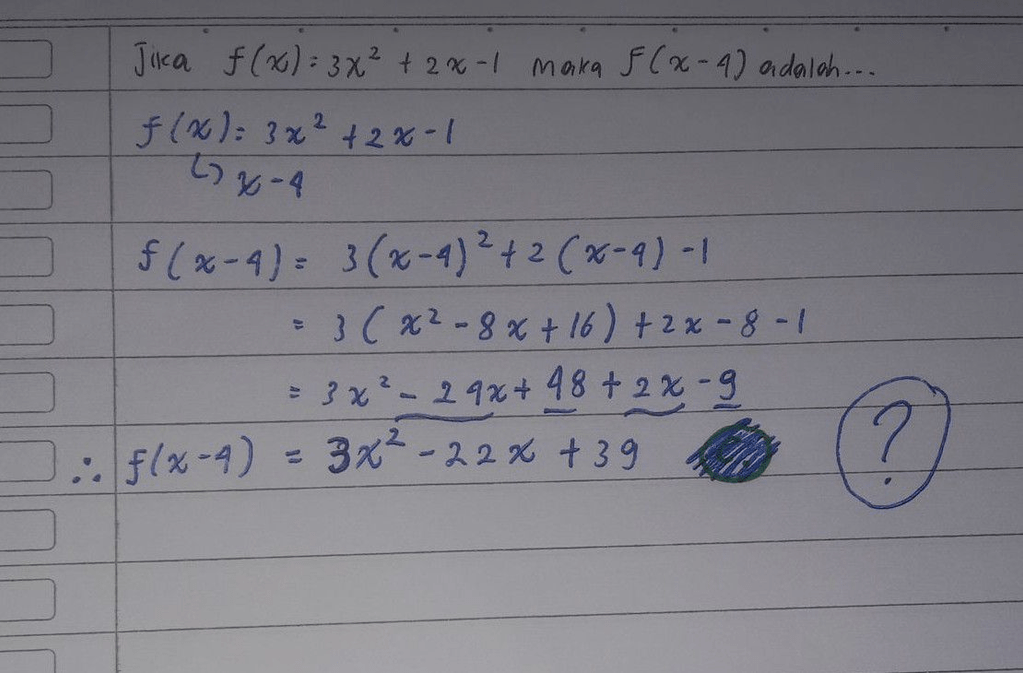 Jika f(x) = 3x² + 2x - 1 maka f(x - 4) adalah...
f(x) = 3x² + 2x - 1
↳ x - 4
f(x - 4) = 3(x - 4)² + 2(x - 4) - 1
= 3(x² - 8x + 16) + 2x - 8 - 1
= 3x² - 24x + 48 + 2x - 9
∴ f(x - 4) = 3x² - 22x + 39
?